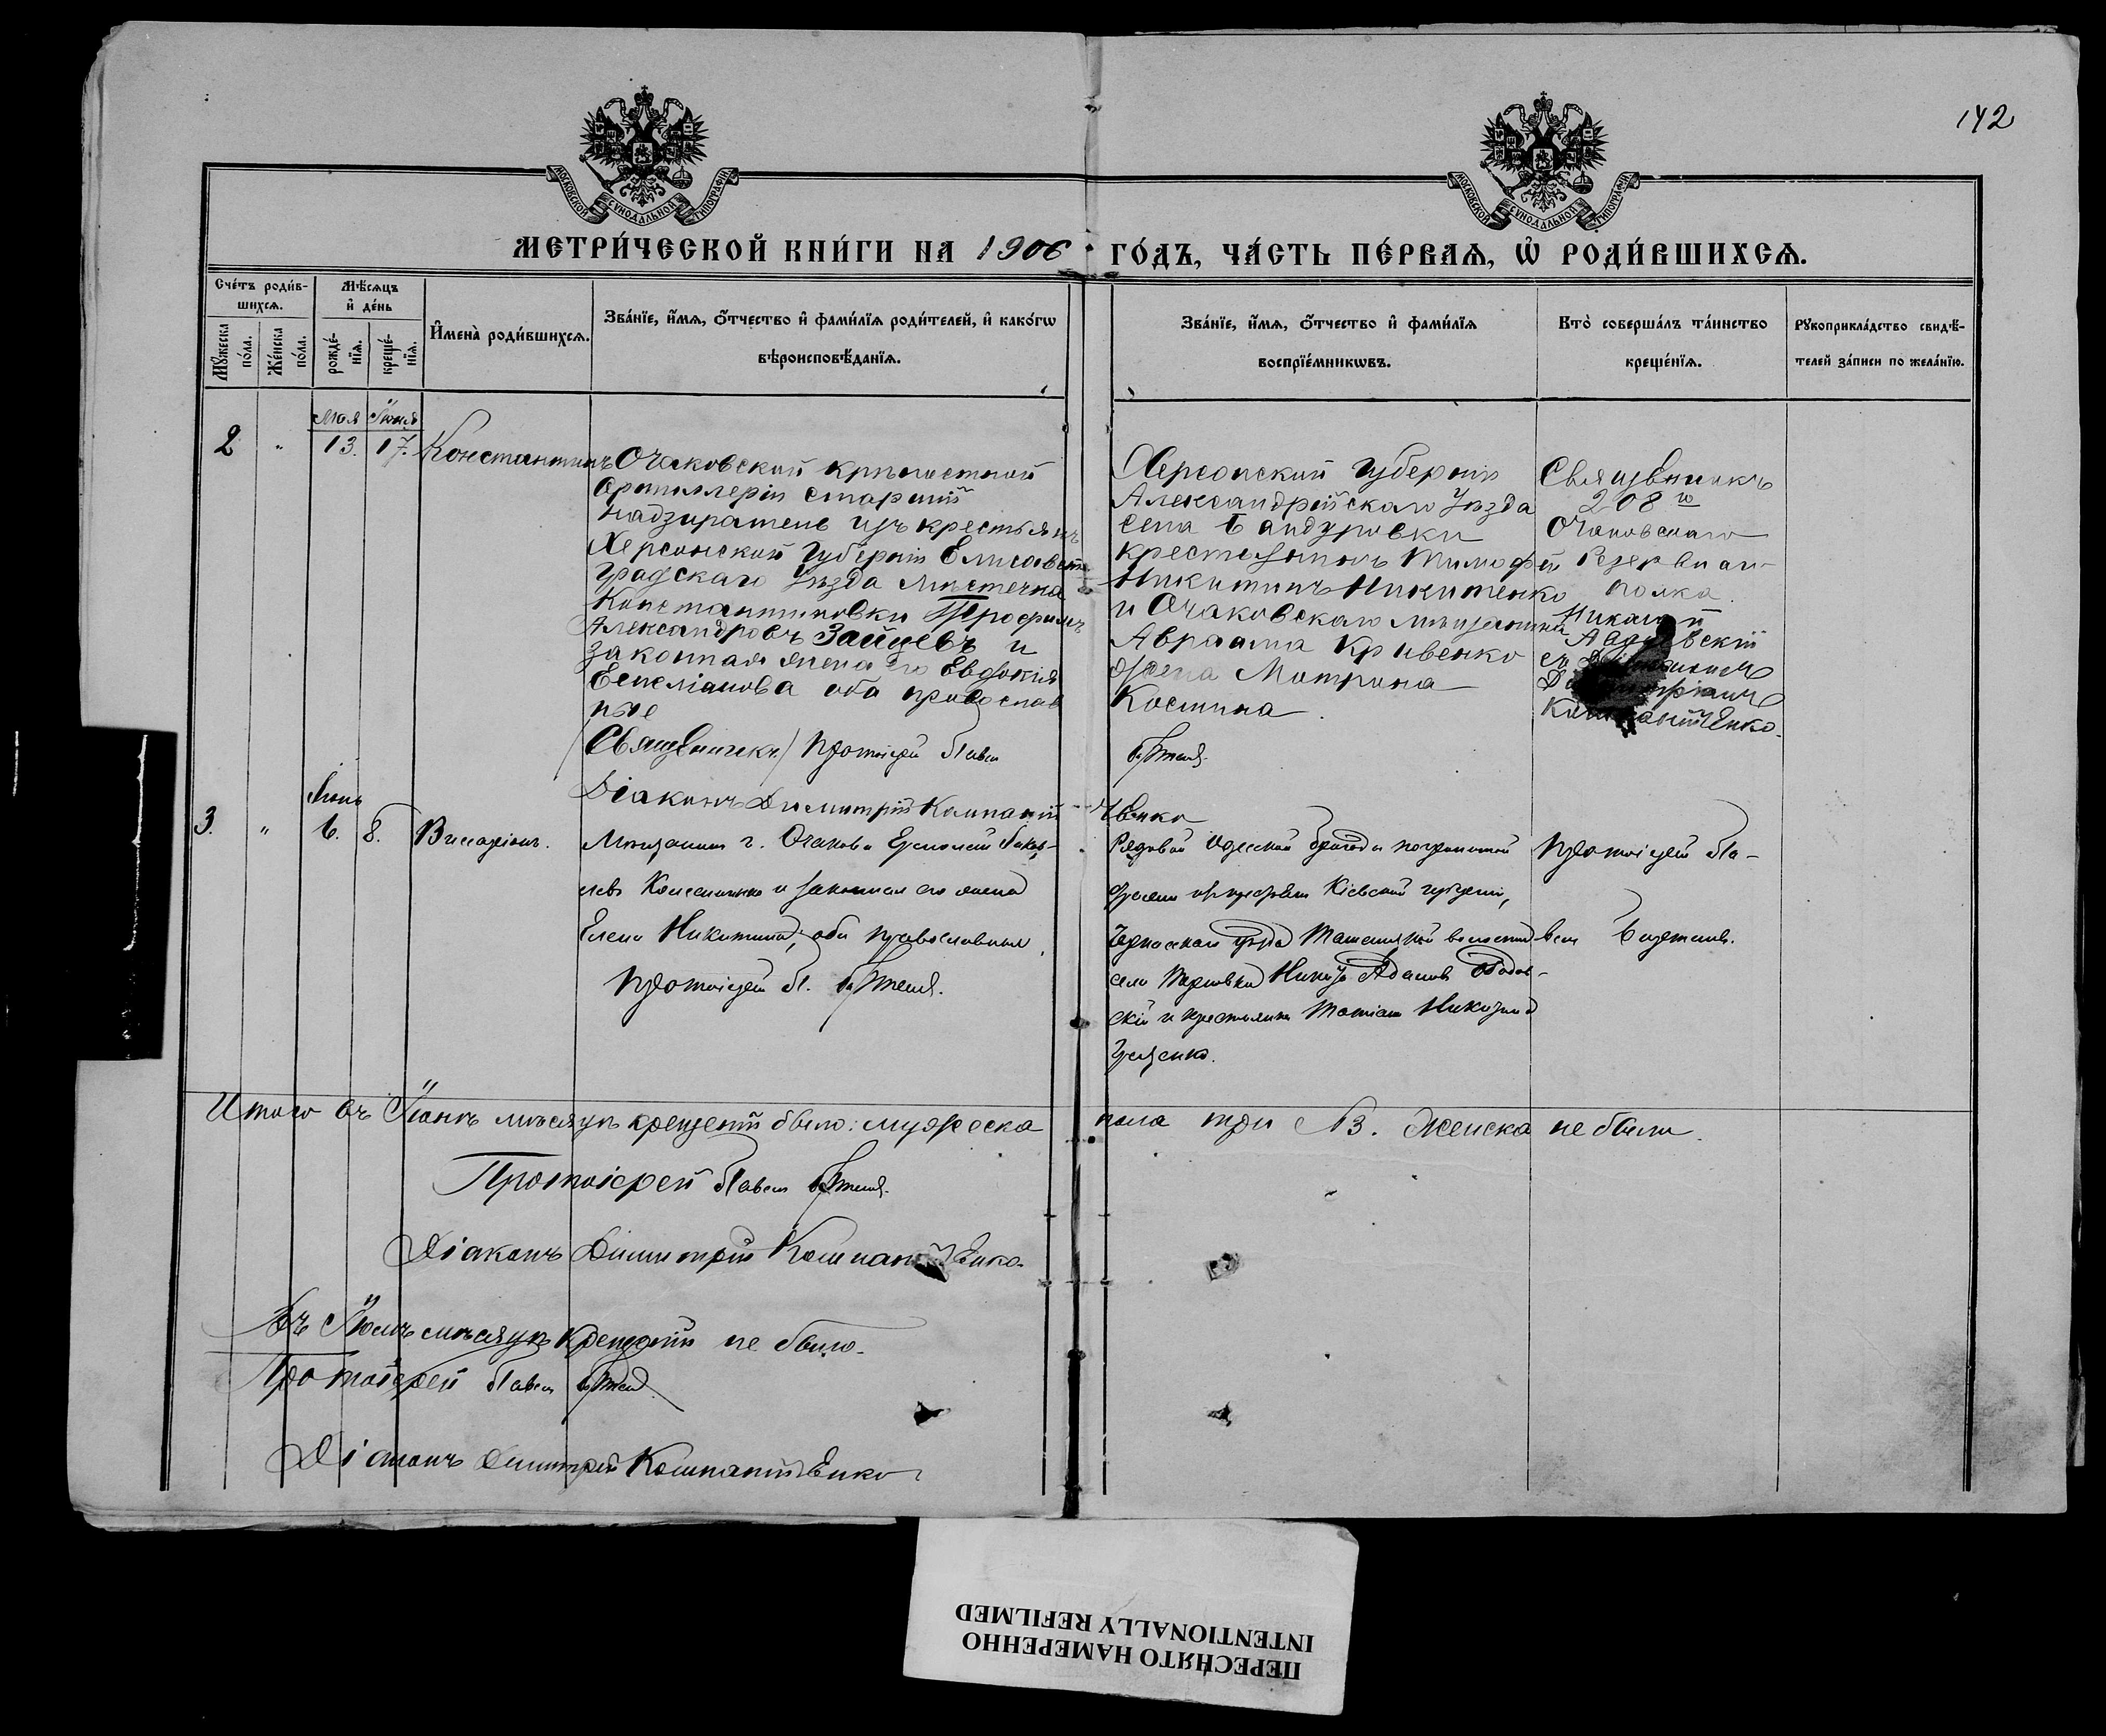 142
МОСКОВСКОЙ СѴНОДАЛЬНОЙ ТИПОГРАФІИ
МОСКОВСКОЙ СѴНОДАЛЬНОЙ ТИПОГРАФІИ
МЕТРИ́ЧЕСКОЙ КНИ́ГИ НА 1906 ГО́ДЪ, ЧА́СТЬ ПЕ́РВАѦ, Ѡ҆ РОДИ́ВШИХСѦ.
Сче́тъ роди́в-
шихсѧ.
Мѣ́сѧцъ
и҆ де́нь
Мꙋ́жеска по́ла.
Же́нска по́ла.
рожде́-
нїѧ.
креще́-
нїѧ.
И҆мена̀ роди́вшихсѧ.
Зва́нїе, и҆́мѧ, ѻ҆́тчество и҆ фами́лїѧ роди́телей, и҆ како́гѡ
вѣроисповѣ́данїѧ.
Зва́нїе, и҆́мѧ, ѻ҆́тчество и҆ фами́лїѧ
воспрїе́мникѡвъ.
Кто̀ соверша́лъ та́инство
креще́нїѧ.
Рꙋкоприкла́дство свидѣ́-
телей за́писи по жела́нїю.
Мая Іюня
2 " 13. 17. Константинъ
Очаковской крѣпостной
Артиллеріи старшій
надзиратель изъ крестьянъ
Херсонской Губерніи Елисавет-
градскаго Уѣзда мѣстечка
Константиновки Трофимъ
Александровъ Зайцевъ и
законная жена его Евдокія
Емеліанова оба православ
ные
/Священникъ/ Протоіерей Павел
Діаконъ Димитрій Компаній
Херсонской Губерніи
Александрійскаго Уѣзда
села Бандуровки
крестьянинъ Тимофей
Никитинъ Никитенко
и Очаковскаго мѣщанина
Авраама Кривенко
жена Матрона
Костина.
ченко
Священникъ
208 го
Очаковскаго
Резервнаго
полка
Николай
съ Діакономъ
Компанійченко.
Іюнь
3. " 6. 8. Виссаріонъ.
Мѣщанинъ г. Очакова
и законная его жена
Елена Никитина, оба православные.
Протоіерей П.
Рядовой Одесской бригады пограничной
стражи Кіевской губерніи,
Черкасскаго уѣзда волости
села
скій и крестьянка
Протоіерей Па-
вел
Итого въ Іюнѣ мѣсяцѣ крещеній было: мужеска пола три №3. Женска не было.
Протоіерей Павел
Діаконъ Димитрій Компанійченко
Въ Іюлѣ мѣсяцѣ крещеній не было.
Протоіерей Павел
Діаконъ Димитрій Компанійченко
ПЕРЕСНЯТО НАМЕРЕННО
INTENTIONALLY REFILMED